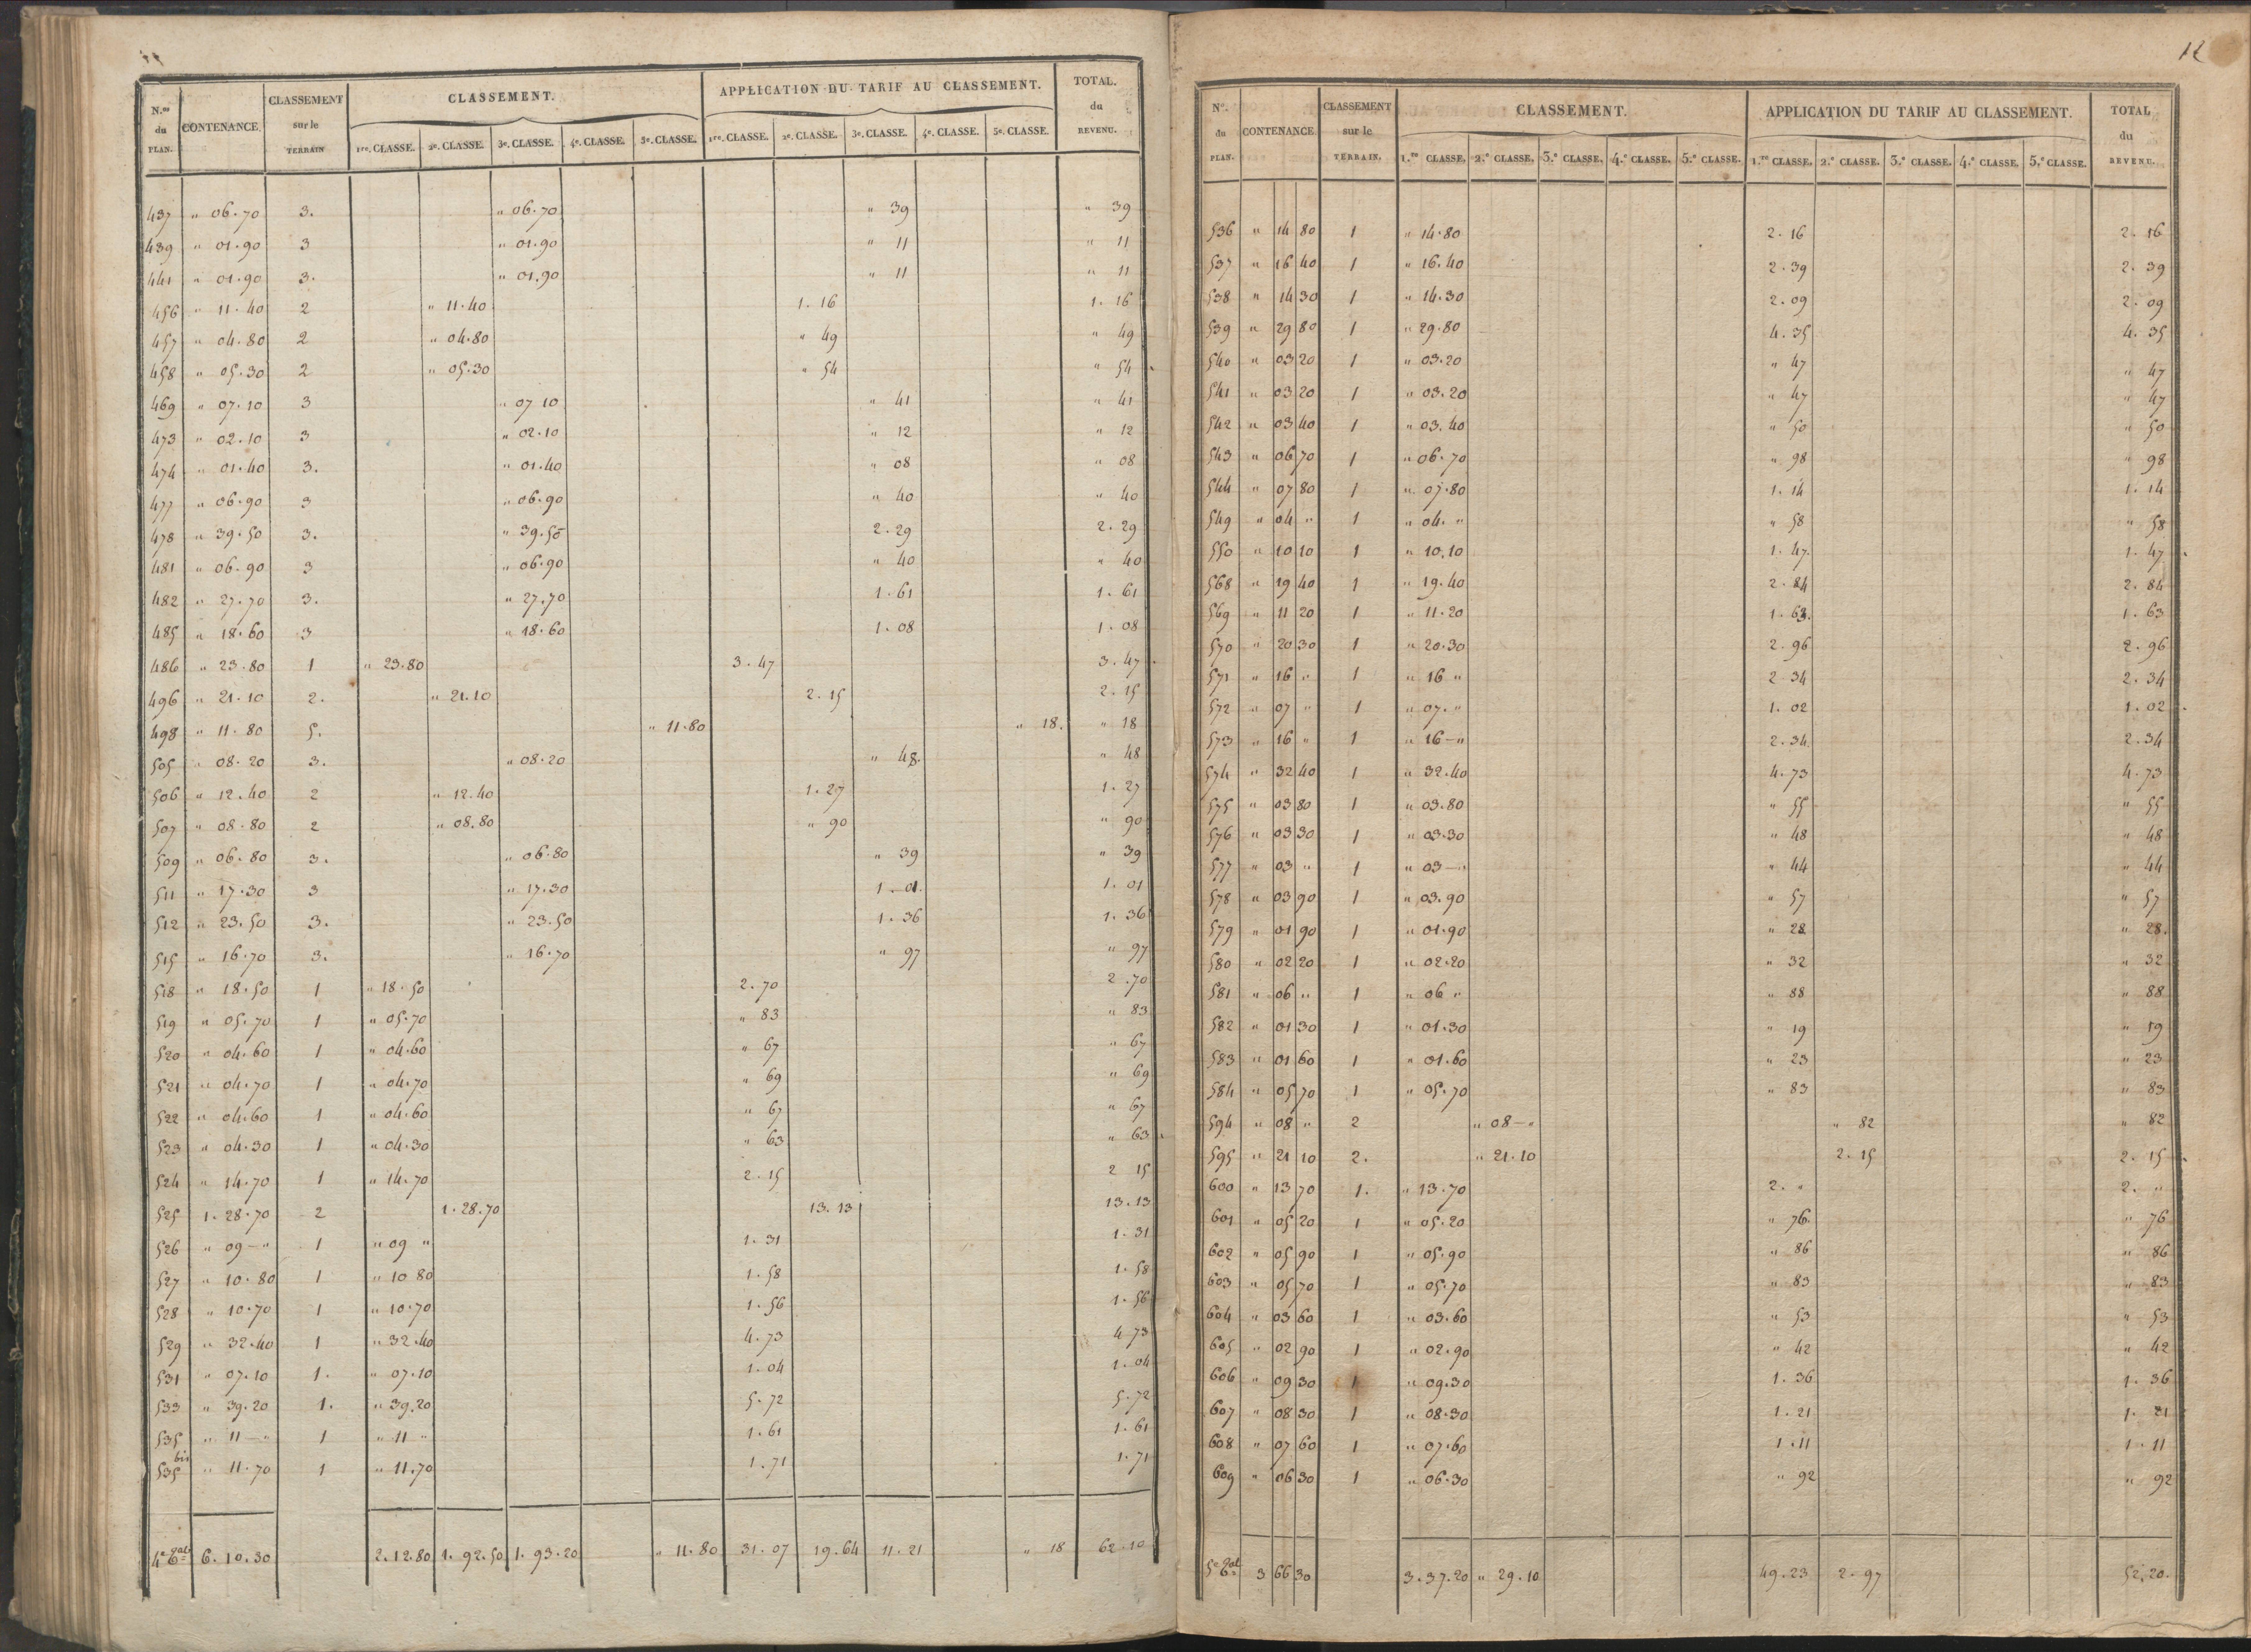 N.os du PLAN. CONTENANCE. CLASSEMENT sur le TERRAIN CLASSEMENT. APPLICATION DU TARIF AU CLASSEMENT. TOTAL. du REVENU.
1re. CLASSE. 2e. CLASSE. 3e. CLASSE. 4e. CLASSE. 5e. CLASSE. 1re. CLASSE. 2e. CLASSE. 3e. CLASSE. 4e. CLASSE. 5e. CLASSE.
437 " 06.70 3. " 06.70 " 39 " 39
439 " 01.90 3 " 01.90 " 11 " 11
441 " 01.90 3. " 01.90 " 11 " 11
456 " 11.40 2 " 11.40 1. 16 1. 16
457 " 04.80 2 " 04.80 " 49 " 49
458 " 05.30 2 " 05.30 " 54 " 54
469 " 07.10 3 " 07.10 " 41 " 41
473 " 02.10 3 " 02.10 " 12 " 12
474 " 01.40 3. " 01.40 " 08 " 08
477 " 06.90 3 " 06.90 " 40 " 40
478 " 39.50 3. " 39.50 2.29 2.29
481 " 06.90 3 " 06.90 " 40 " 40
482 " 27.70 3. " 27.70 1.61 1.61
485 " 18.60 3 " 18.60 1.08 1.08
486 " 23.80 1 " 23.80 3.47 3.47
496 " 21.10 2. " 21.10 2.15 2.15
498 " 11.80 5. " 11.80 " 18. " 18
505 " 08.20 3. " 08.20 " 48. " 48
506 " 12.40 2 " 12.40 1.27 1.27
507 " 08.80 2 " 08.80 " 90 " 90
509 " 06.80 3. " 06.80 " 39 " 39
511 " 17.30 3 " 17.30 1.01. 1.01
512 " 23.50 3. " 23.50 1.36 1.36
515 " 16.70 3. " 16.70 " 97 " 97
518 " 18.50 1 " 18.50 2.70 2.70
519 " 05.70 1 " 05.70 " 83 " 83
520 " 04.60 1 " 04.60 " 67 " 67
521 " 04.70 1 " 04.70 " 69 " 69
522 " 04.60 1 " 04.60 " 67 " 67
523 " 04.30 1 " 04.30 " 63 " 63
524 " 14.70 1 " 14.70 2.15 2 15
525 1.28.70 2 1.28.70 13.13 13.13
526 " 09 - " 1 " 09 " 1.31 1.31
527 " 10.80 1 " 10 80 1.58 1.58
528 " 10.70 1 " 10.70 1.56 1.56
529 " 32.40 1 " 32.40 4.73 4.73
531 " 07.10 1. " 07.10 1.04 1.04
533 " 39.20 1. " 39.20 5.72 5.72
535 " 11 - " 1 " 11 " 1.61 1.61
535 bis " 11.70 1 " 11.70 1.71 1.71
6.10.30 2.12.80 1.92.50 1.93.20 " 11.80 31.07 19.64 11.21 " 18 62.10
12
N.o du PLAN. CONTENANCE CLASSEMENT sur le TERRAIN. CLASSEMENT. APPLICATION DU TARIF AU CLASSEMENT. TOTAL du REVENU.
1.re CLASSE. 2.e CLASSE. 3.e CLASSE. 4.e CLASSE. 5.e CLASSE. 1.re CLASSE. 2.e CLASSE. 3.e CLASSE. 4.e CLASSE. 5.e CLASSE.
536 " 14 80 1 " 14.80 2.16 2.16
537 " 16 40 1 " 16.40 2.39 2.39
538 " 14 30 1 " 14.30 2.09 2.09
539 " 29 80 1 " 29.80 4.35 4.35
540 " 03 20 1 " 03.20 " 47 " 47
541 " 03 20 1 " 03.20 " 47 " 47
542 " 03 40 1 " 03.40 " 50 " 50
543 " 06 70 1 " 06.70 " 98 " 98
544 " 07 80 1 " 07.80 1.14 1.14
549 " 04 " 1 " 04. " " 58 " 58
550 " 10 10 1 " 10.10 1.47. 1.47
568 " 19 40 1 " 19.40 2.84 2.84
569 " 11 20 1 " 11.20 1.63. 1.63
570 " 20 30 1 " 20.30 2.96 2.96
571 " 16 " 1 " 16 " 2 34 2.34
572 " 07 " 1 " 07. " 1.02 1.02
573 " 16 " 1 " 16 - " 2.34 2.34
574 " 32 40 1 " 32.40 4.73 4.73
575 " 03 80 1 " 03.80 " 55 " 55
576 " 03 30 1 " 03.30 " 48 " 48
577 " 03 " 1 " 03 - " " 44 " 44
578 " 03 90 1 " 03.90 " 57 " 57
579 " 01 90 1 " 01.90 " 28 " 28.
580 " 02 20 1 " 02.20 " 32 " 32
581 " 06 " 1 " 06 " " 88 " 88
582 " 01 30 1 " 01.30 " 19 " 19
583 " 01 60 1 " 01.60 " 23 " 23
584 " 05 70 1 " 05.70 " 83 " 83
594 " 08 " 2 " 08 - " " 82 " 82
595 " 21 10 2. " 21.10 2.15 2.15
600 " 13 70 1. " 13.70 2. " 2. "
601 " 05 20 1 " 05.20 " 76. " 76
602 " 05 90 1 " 05.90 " 86 " 86
603 " 05 70 1 " 05.70 " 83 " 83
604 " 03 60 1 " 03.60 " 53 " 53
605 " 02 90 1 " 02.90 " 42 " 42
606 " 09 30 1 " 09.30 1.36 1.36
607 " 08 30 1 " 08.30 1.21 1.21
608 " 07 60 1 " 07.60 1.11 1.11
609 " 06 30 1 " 06.30 " 92 " 92
3 66 30 3.37.20 " 29.10 49.23 2.97 52.20.